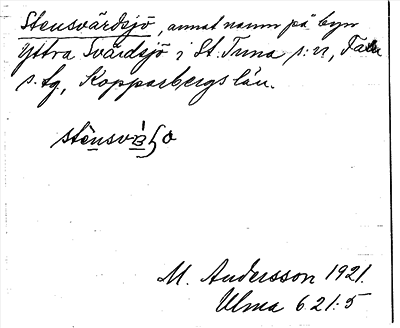 Stensvärdsjö, annat namn på byn
Yttra Svärdsjö i St. Tuna s:n, Falu
s. tg, Kopparbergs län.
M. Andersson 1921.
Ulma 621:5